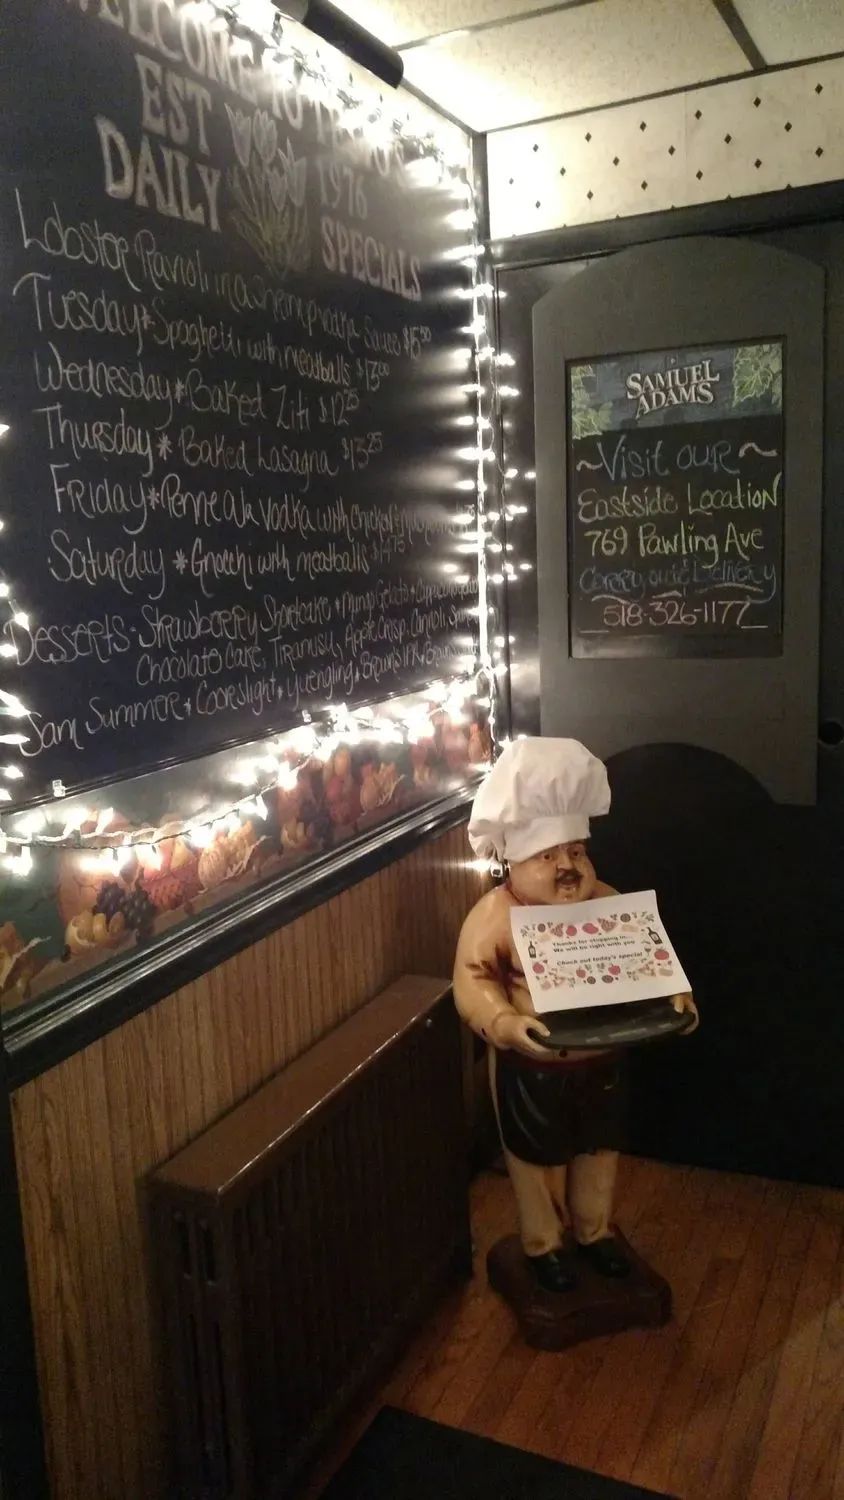 WELCOME TO
EST 1976
DAILY SPECIALS
Lobster Ravioli in a shrimp vodka sauce $15⁵⁰
Tuesday * Spaghetti with meatballs $13⁰⁰
Wednesday * Baked Ziti $12²⁵
Thursday * Baked Lasagna $13²⁵
Friday * Penne ala vodka with chicken &
Saturday * Gnocchi with meatballs $14⁷⁵
Desserts - Strawberry Shortcake * Gelato *
Chocolate Cake, Tiramisu, Apple Crisp, Cannoli,
Sam Summer * Coors light * Yuengling *
SAMUEL
ADAMS
~Visit our~
Eastside Location
769 Pawling Ave
Carry out & Delivery
518-326-1177
Thanks for stopping in...
We will be right with you
Check out today's special